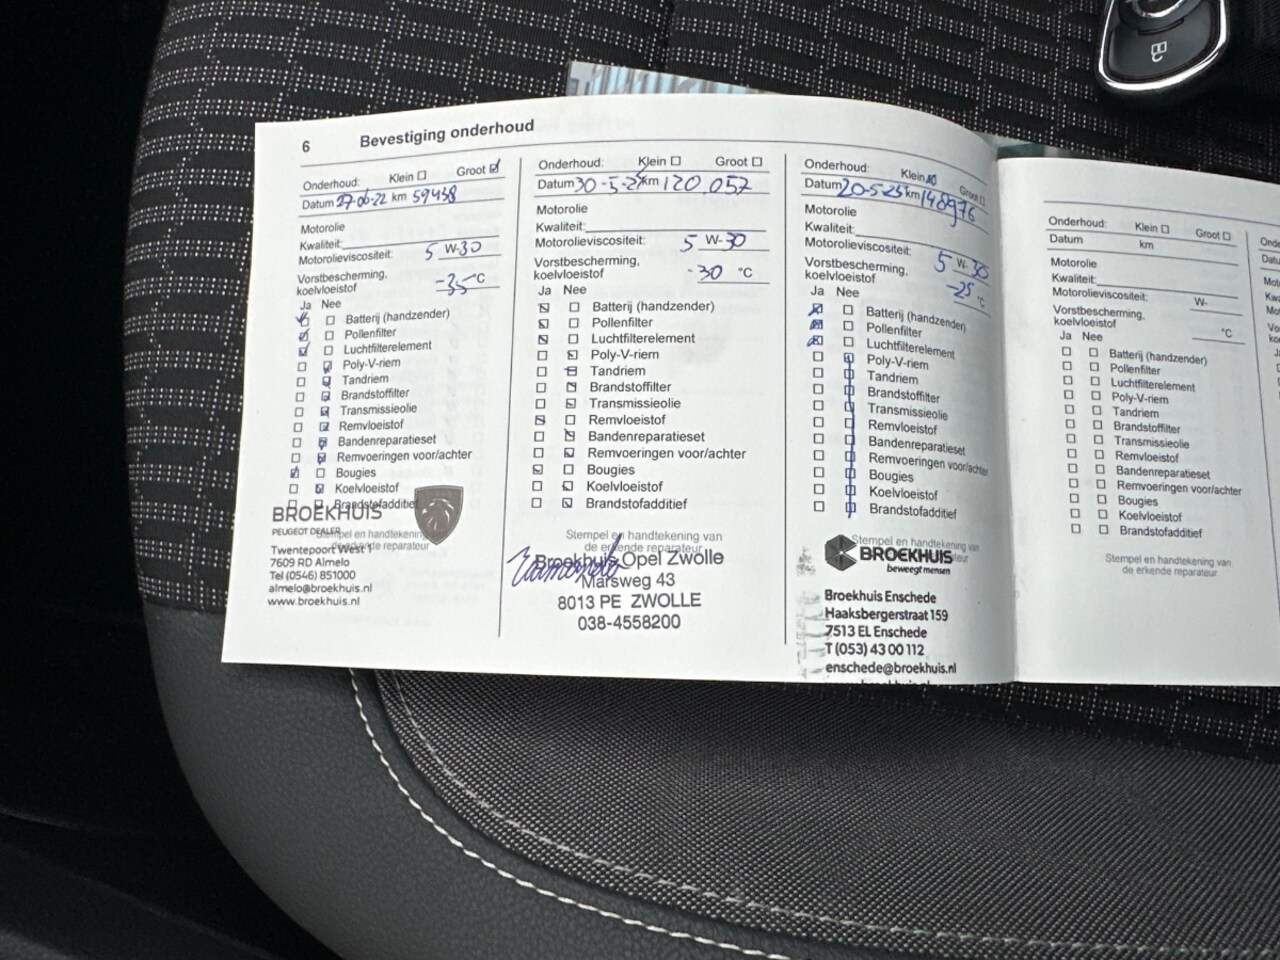 6 Bevestiging onderhoud
Onderhoud: Klein Groot
Datum 27-06-22 km 59438
Motorolie
Kwaliteit:
Motorolieviscositeit: 5 W-30
Vorstbescherming,
koelvloeistof -35 °C
Ja Nee
Batterij (handzender)
Pollenfilter
Luchtfilterelement
Poly-V-riem
Tandriem
Brandstoffilter
Transmissieolie
Remvloeistof
Bandenreparatieset
Remvoeringen voor/achter
Bougies
Koelvloeistof
Brandstofadditief
Stempel en handtekening
de erkende reparateur
BROEKHUIS
PEUGEOT DEALER
Twentepoort West 1
7609 RD Almelo
Tel (0546) 851000
almelo@broekhuis.nl
www.broekhuis.nl
Onderhoud: Klein Groot
Datum 30-5-24 km 120 057
Motorolie
Kwaliteit:
Motorolieviscositeit: 5 W-30
Vorstbescherming,
koelvloeistof -30 °C
Ja Nee
Batterij (handzender)
Pollenfilter
Luchtfilterelement
Poly-V-riem
Tandriem
Brandstoffilter
Transmissieolie
Remvloeistof
Bandenreparatieset
Remvoeringen voor/achter
Bougies
Koelvloeistof
Brandstofadditief
Stempel en handtekening van
de erkende reparateur
Broekhuis Opel Zwolle
Marsweg 43
8013 PE ZWOLLE
038-4558200
Onderhoud: Klein Groot
Datum 20-5-25 km 148976
Motorolie
Kwaliteit:
Motorolieviscositeit: 5 W-30
Vorstbescherming,
koelvloeistof -25 °C
Ja Nee
Batterij (handzender)
Pollenfilter
Luchtfilterelement
Poly-V-riem
Tandriem
Brandstoffilter
Transmissieolie
Remvloeistof
Bandenreparatieset
Remvoeringen voor/achter
Bougies
Koelvloeistof
Brandstofadditief
Stempel en handtekening van
BROEKHUIS
beweegt mensen
Broekhuis Enschede
Haaksbergerstraat 159
7513 EL Enschede
T (053) 43 00 112
enschede@broekhuis.nl
Onderhoud: Klein Groot
Datum km
Motorolie
Kwaliteit:
Motorolieviscositeit: W-
Vorstbescherming,
koelvloeistof °C
Ja Nee
Batterij (handzender)
Pollenfilter
Luchtfilterelement
Poly-V-riem
Tandriem
Brandstoffilter
Transmissieolie
Remvloeistof
Bandenreparatieset
Remvoeringen voor/achter
Bougies
Koelvloeistof
Brandstofadditief
Stempel en handtekening van
de erkende reparateur